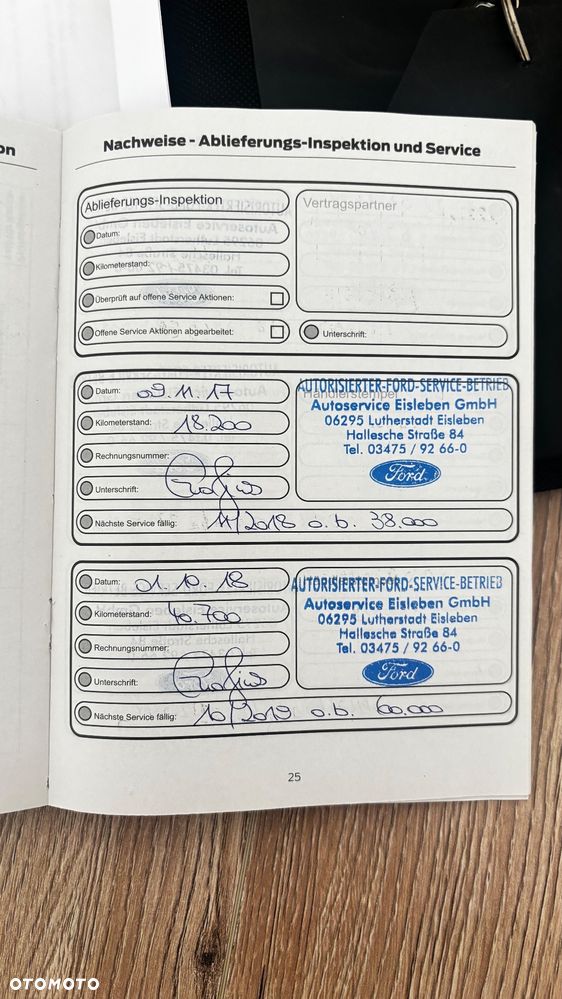 on
Nachweise - Ablieferungs-Inspektion und Service
Ablieferungs-Inspektion
Vertragspartner
Datum:
Kilometerstand:
Überprüft auf offene Service Aktionen:
Offene Service Aktionen abgearbeitet:
Unterschrift:
Datum: 09.11.17
Kilometerstand: 18.200
Rechnungsnummer:
Unterschrift:
Händlerstempel
AUTORISIERTER-FORD-SERVICE-BETRIEB
Autoservice Eisleben GmbH
06295 Lutherstadt Eisleben
Hallesche Straße 84
Tel. 03475 / 92 66-0
Ford
Nächste Service fällig: 11/2018 o.b. 38.000
Datum: 01.10.18
Kilometerstand: 40.700
Rechnungsnummer:
Unterschrift:
AUTORISIERTER-FORD-SERVICE-BETRIEB
Autoservice Eisleben GmbH
06295 Lutherstadt Eisleben
Hallesche Straße 84
Tel. 03475 / 92 66-0
Ford
Nächste Service fällig: 10/2019 o.b. 60.000
25
OTOMOTO